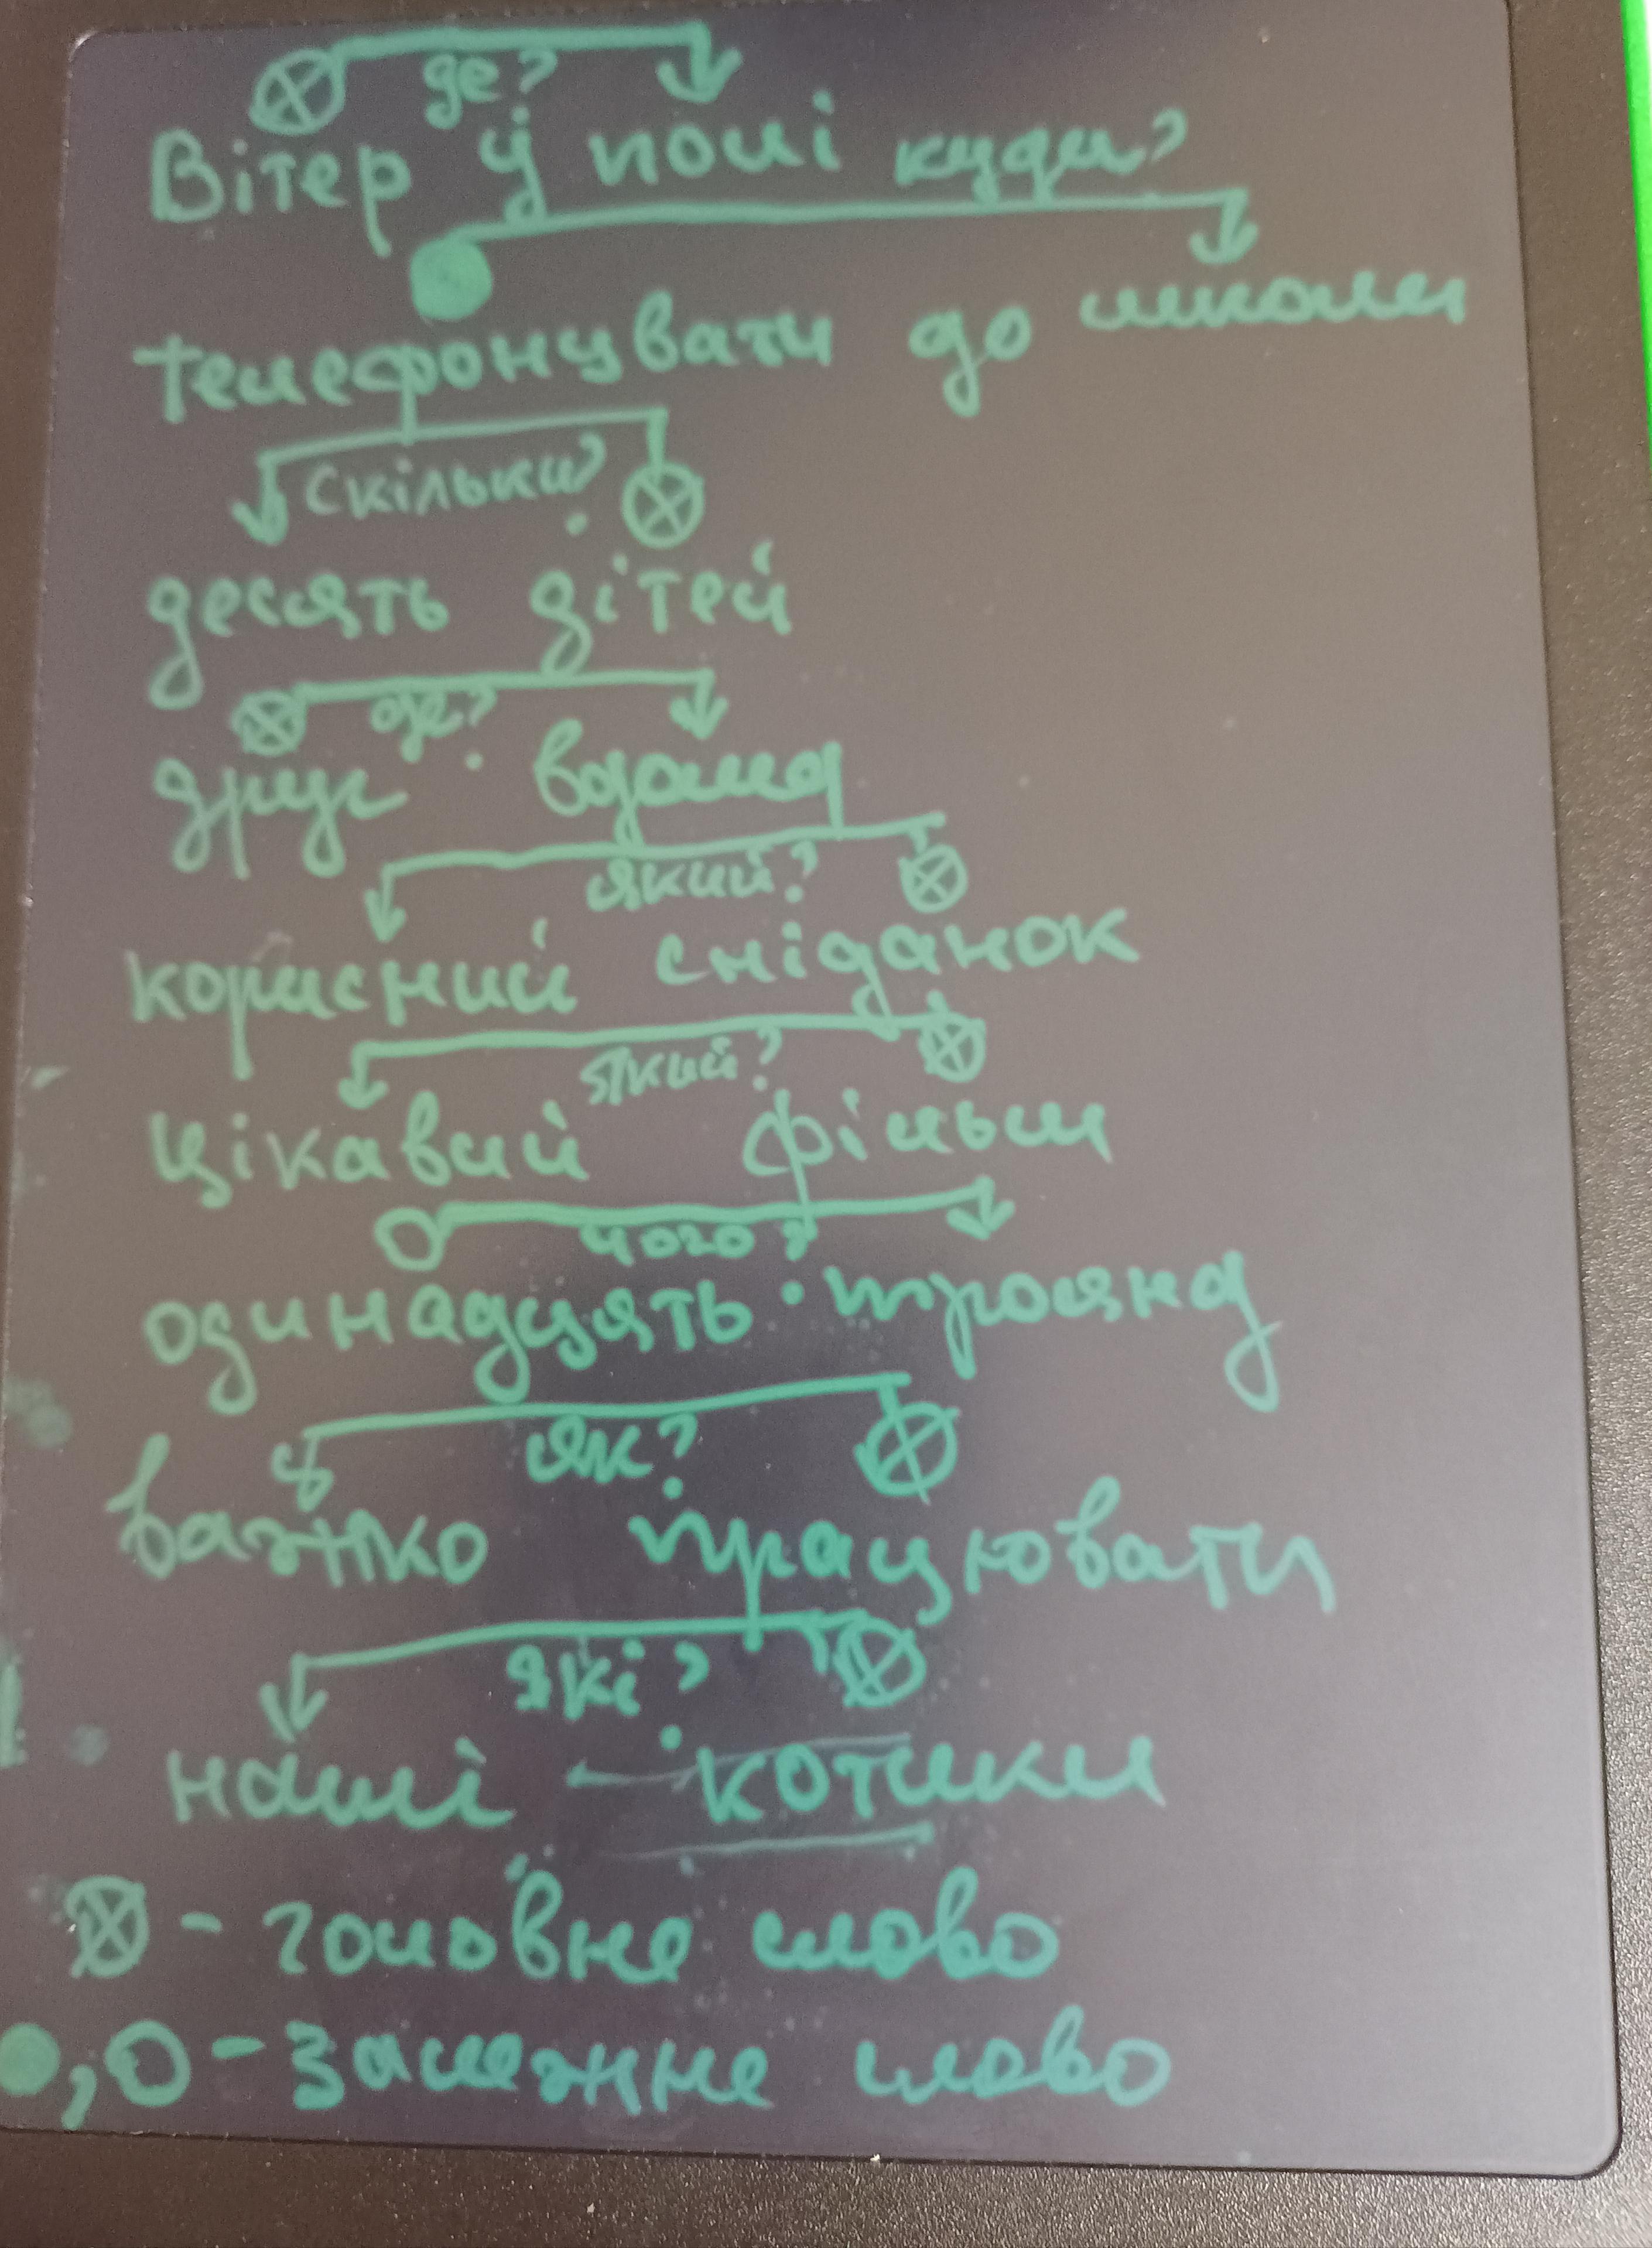 де?
Вітер у полі куди?
телефонувати до школи
скільки?
десять дітей
де?
друг вдома
який?
корисний сніданок
який?
цікавий фільм
чого?
одинадцять троянд
як?
важко працювати
які?
наші котики
⊗ - головне слово
●, ○ - залежне слово